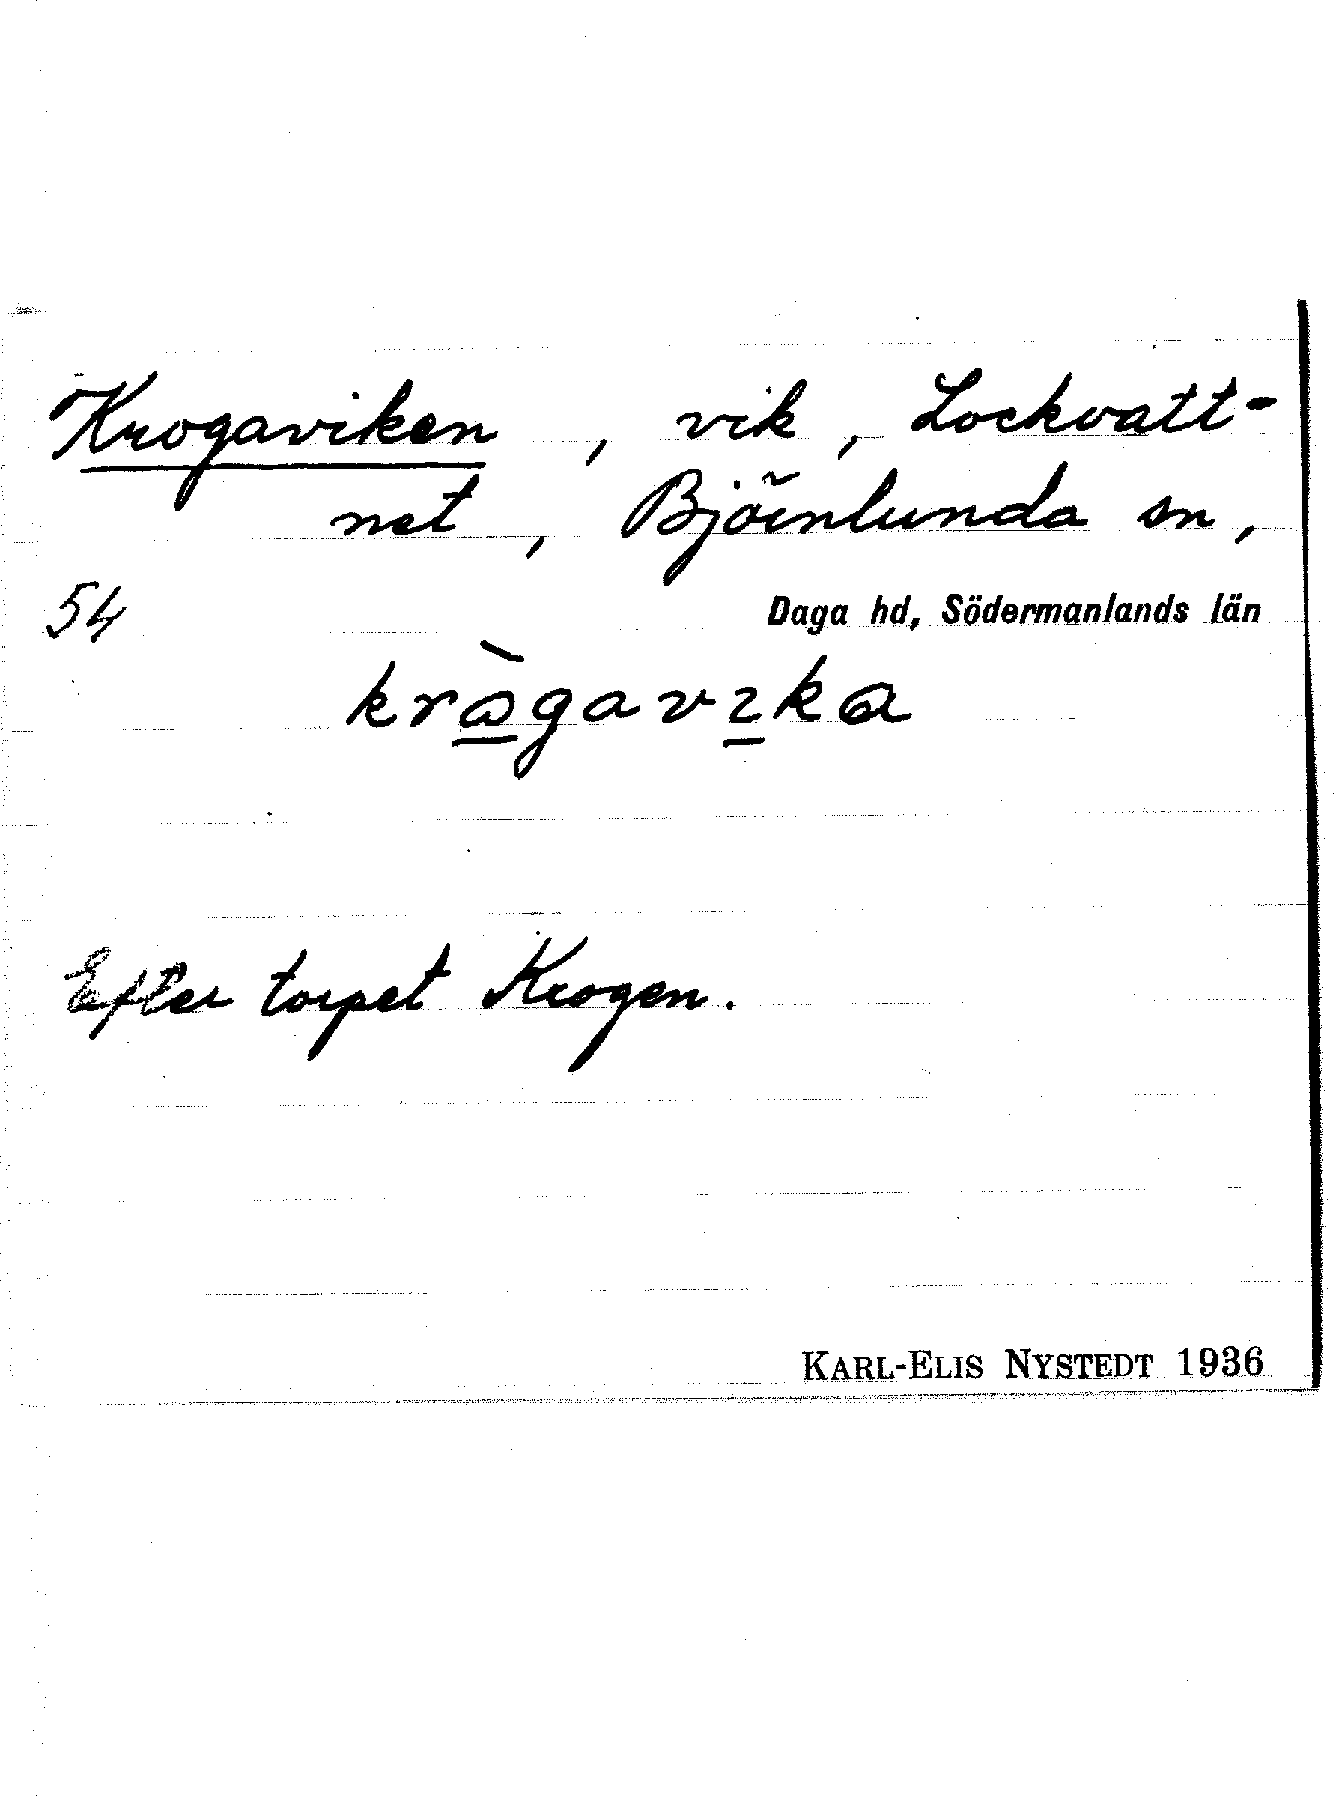 Krogaviken, vik, Lockvatt-
net, Björnlunda sn,
54 Daga hd, Södermanlands län
kràgavika
Efter torpet Krogen.
KARL-ELIS NYSTEDT 1936